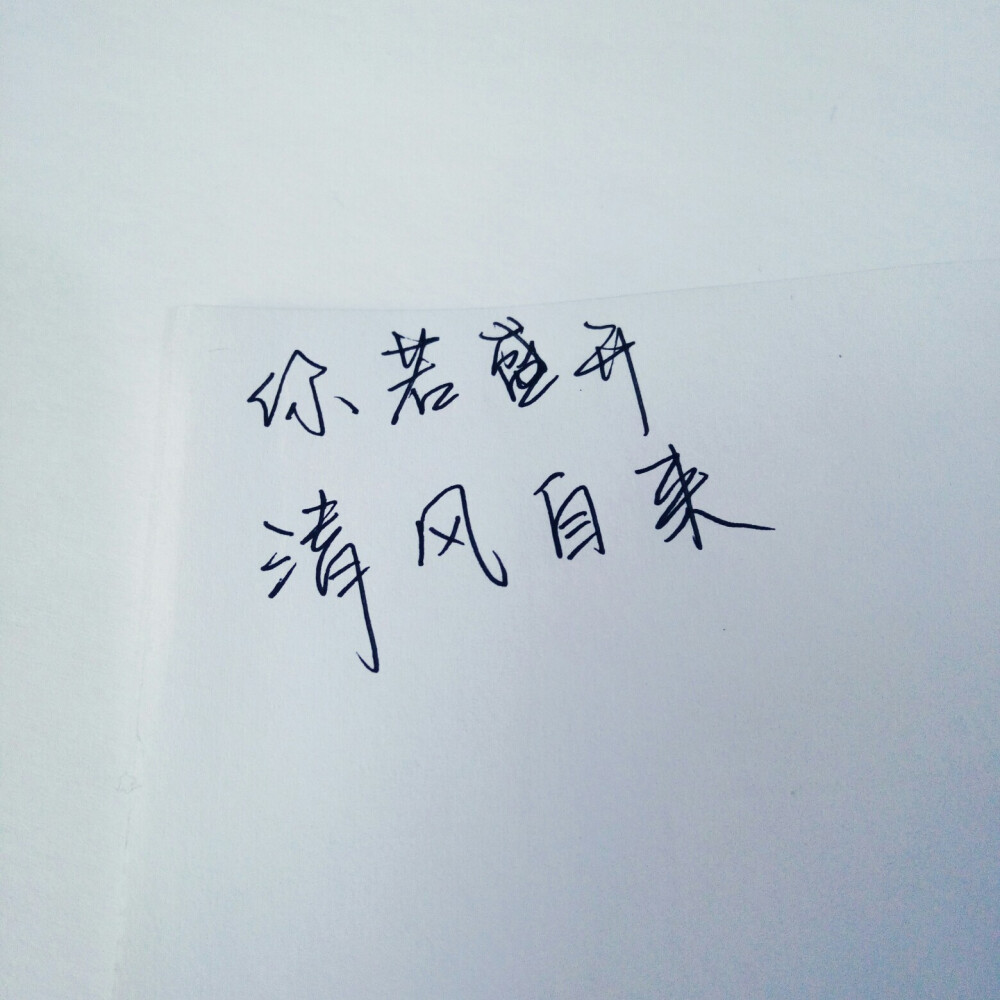 你若盛开
清风自来